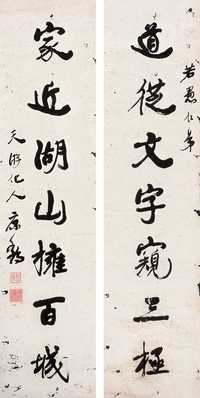 若愚仁弟
道從文字窺三極
家近湖山擁百城
天游化人康有為